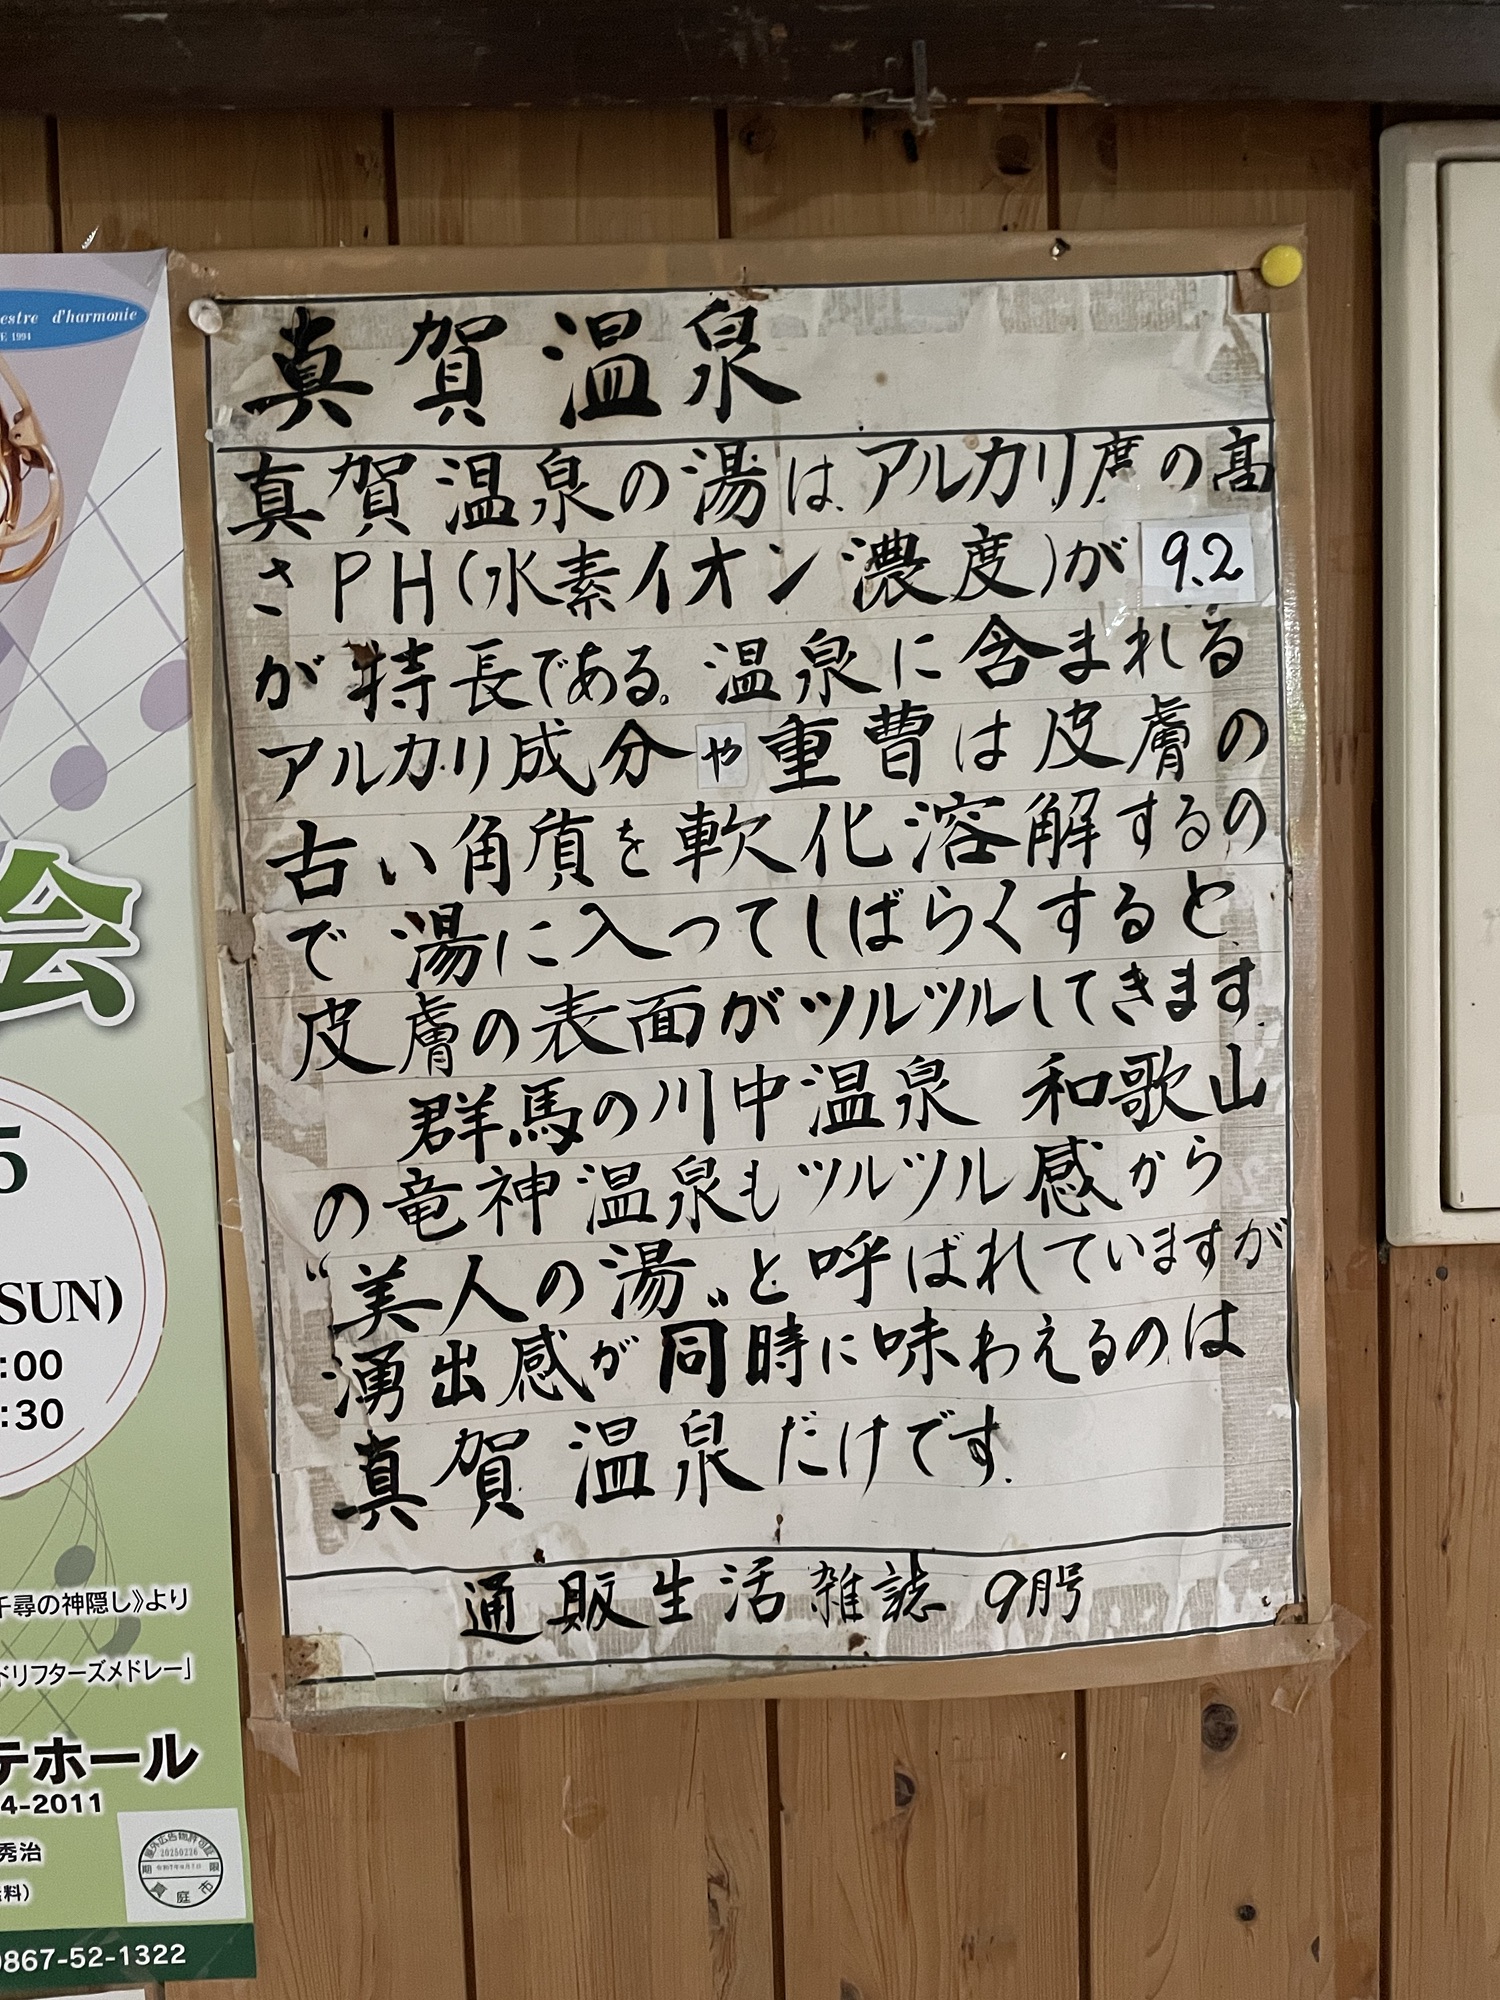 真賀温泉
真賀温泉の湯は、アルカリ度の高
さPH(水素イオン濃度)が9.2
が特長である。温泉に含まれる
アルカリ成分や重曹は皮膚の
古い角質を軟化溶解するの
で湯に入ってしばらくすると、
皮膚の表面がツルツルしてきます。
群馬の川中温泉 和歌山
の竜神温泉もツルツル感から
“美人の湯”と呼ばれていますが
湧出感が同時に味わえるのは
真賀温泉だけです。
通販生活雑誌 9月号
estre d'harmonie
E 1994
会
5
SUN)
:00
:30
千尋の神隠し》より
ドリフターズメドレー」
テホール
4-2011
秀治
料)
屋外広告物許可証
20250226
期限
真庭市
0867-52-1322